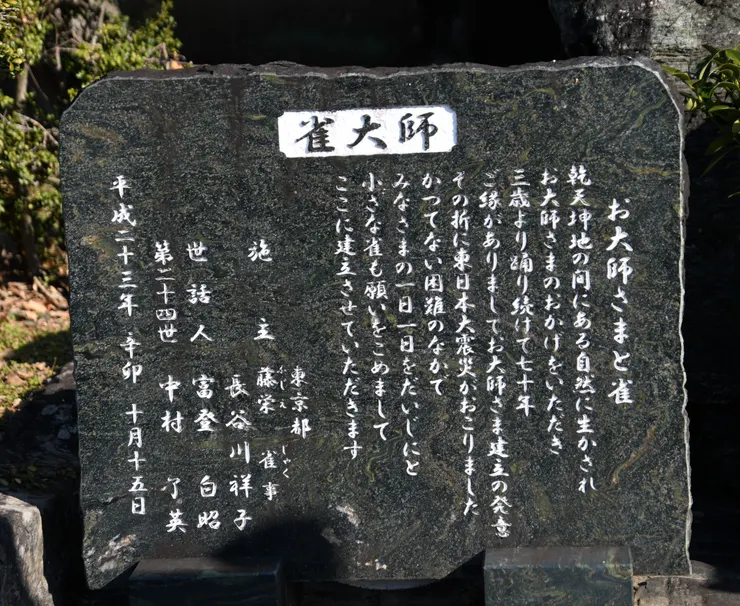 雀大師
お大師さまと雀
乾天坤地の間にある自然に生かされ
お大師さまのおかげをいただき
三歳より踊り続けて七十年
ご縁がありましてお大師さま建立の発意
その折に東日本大震災がおこりました
かつてない困難のなかで
みなさまの一日一日をだいじにと
小さな雀も願いをこめまして
ここに建立させていただきます
東京都
施主 藤栄 雀事
ふじえ じゃく
長谷川祥子
世話人 富登 白昭
第二十四世 中村 了英
平成二十三年 辛卯 十月十五日